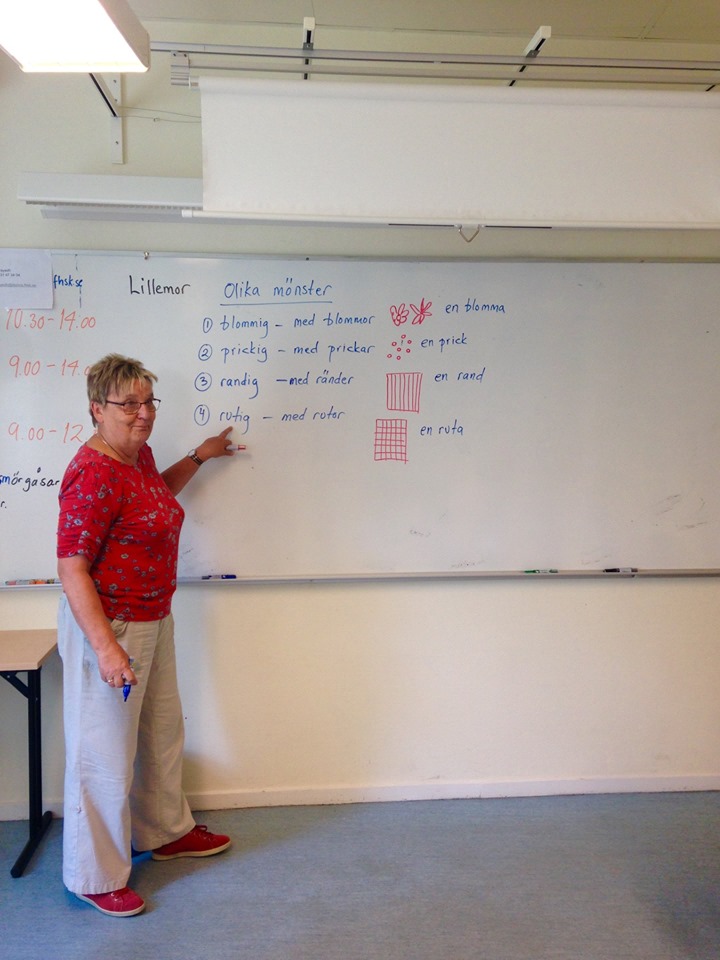 fhsk.se
10.30-14.00
9.00-14.0
9.00-12
smörgåsar
r.
Lillemor
Olika mönster
① blommig - med blommor
en blomma
② prickig - med prickar
en prick
③ randig - med ränder
en rand
④ rutig - med rutor
en ruta